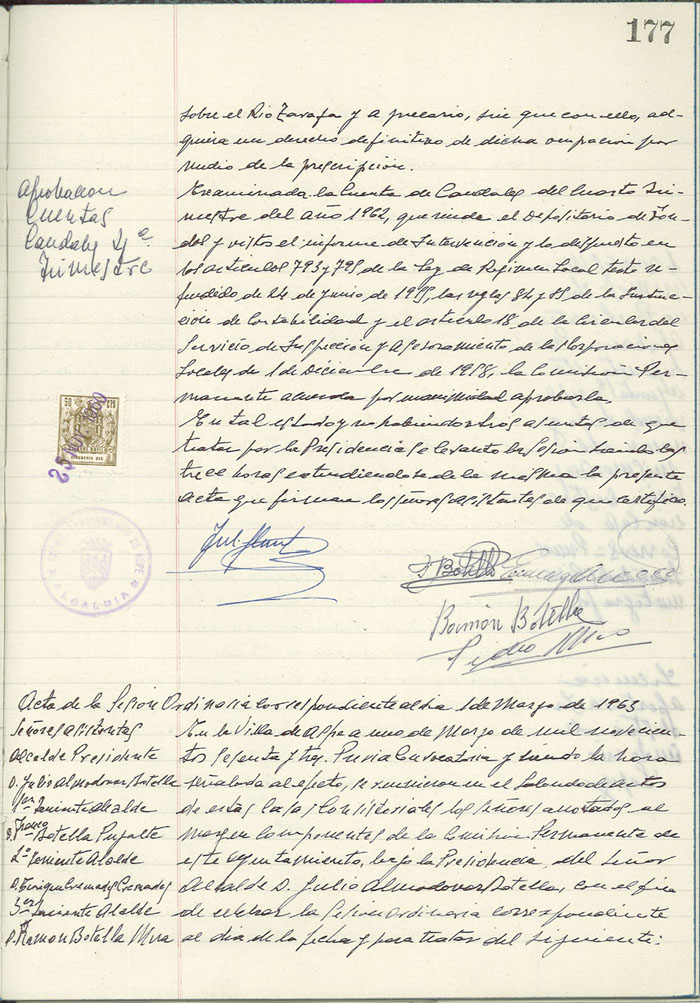 177
sobre el Rio Tarafa y a precario, sin que con ello, ad-
quiera un derecho definitivo de dicha ocupación por
medio de la prescripción.
Aprobacion
Cuentas
Caudales 4º
Trimestre
Examinada la Cuenta de Caudales del Cuarto Tri-
mestre del año 1962, que rinde el Depositario de Fon-
dos y vistos el informe de Intervención y lo dispuesto en
los articulos 793 y 795 de la Ley de Régimen Local texto re-
fundido, de 24 de junio de 1955, las reglas 84 y 85 de la Instruc-
ción de Contabilidad y el artículo 18 de la Circular del
Servicio de Inspección y Asesoramiento de las Corporaciones
Locales de 1 de Diciembre de 1958, la Comisión Per-
manente acuerda por unanimidad aprobarla.
En tal estado y no habiendo otros asuntos de que
tratar por la Presidencia se levanto la Sesion siendo las
trece horas extendiendose de la misma la presente
Acta que firman los señores asistentes de que certifico.
50 CTS
25 1960
ALCALDIA
F Botella
Ramón Botella
Pedro Mira
Acta de la Sesion Ordinaria correspondiente al dia 1 de Marzo de 1963
Señores asistentes
Alcalde Presidente
D. Julio Almodovar Botella
1er Teniente Alcalde
D. Franco Botella Pujalte
2º Teniente Alcalde
D. Enrique Cremades Cremades
3er Teniente Alcalde
D. Ramón Botella Mira
En la Villa de Aspe a uno de Marzo de mil novecien-
tos sesenta y tres. Previa Convocatoria y siendo la hora
señalada al efecto, se reunieron en el Salon de actos
de estas Casas Consistoriales los señores anotados al
margen componentes de la Comisión Permanente de
este Ayuntamiento, bajo la Presidencia del Señor
Alcalde D. Julio Almodovar Botella, con el fin
de celebrar la Sesion Ordinaria correspondiente
al dia de la fecha y para tratar del siguiente: